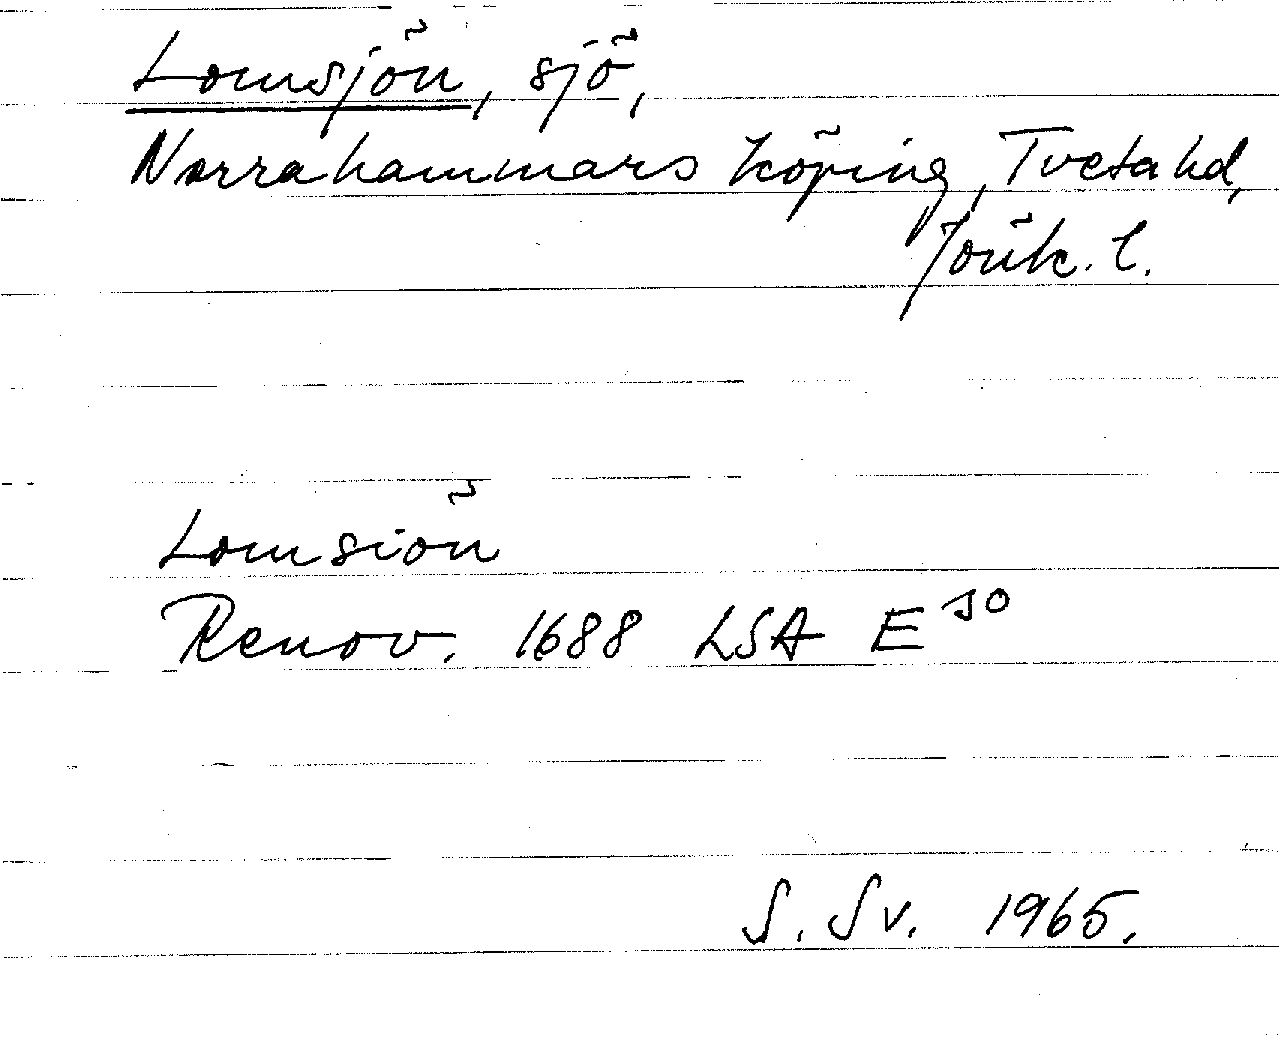 Lomsjön, sjö,
Norrahammars köping, Tveta hd,
Jönk. l.
Lomsiön
Renov. 1688 LSA E 10
S. Sv. 1965.